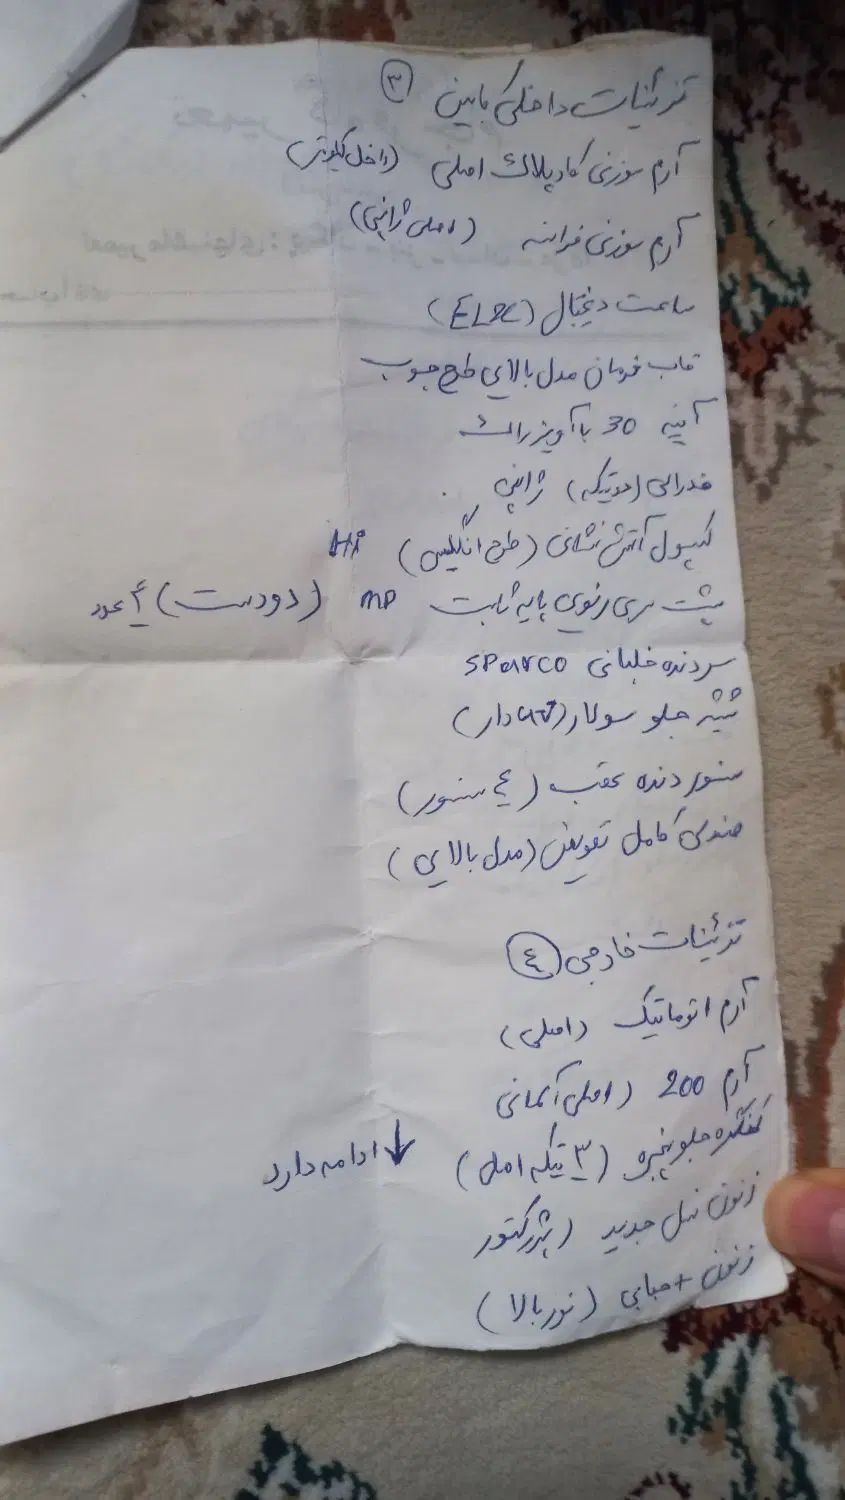 تزئینات داخلی کابین ۳
آرم سوزنی کادیلاک اصلی (داخل کیلومتر)
آرم سوزنی فرانسه (اصلی ژاپنی)
ساعت دیجیتال (ELPC)
قاب فرمان مدل بالایی طرح چوب
آئینه 30 با آویز رالی
فدرالی (دوتیکه) ژاپنی
کپسول آتش نشانی (طرح انگلیس) HP
پشت سری رنوی پایه ثابت MP (دو دست) ۴ عدد
سر دنده خلبانی SPARCO
شیشه جلو سولار (UV دار)
سنسور دنده عقب (۴ سنسور)
صندلی کامل تعویض (مدل بالایی)
تزئینات خارجی ۴
آرم اتوماتیک (اصلی)
آرم 200 (اصلی آلمانی
جلو پنجره (۳ تیکه اصل)
زنون نسل جدید (پرژکتور
زنون + حبابی (نور بالا)
ادامه دارد ↓